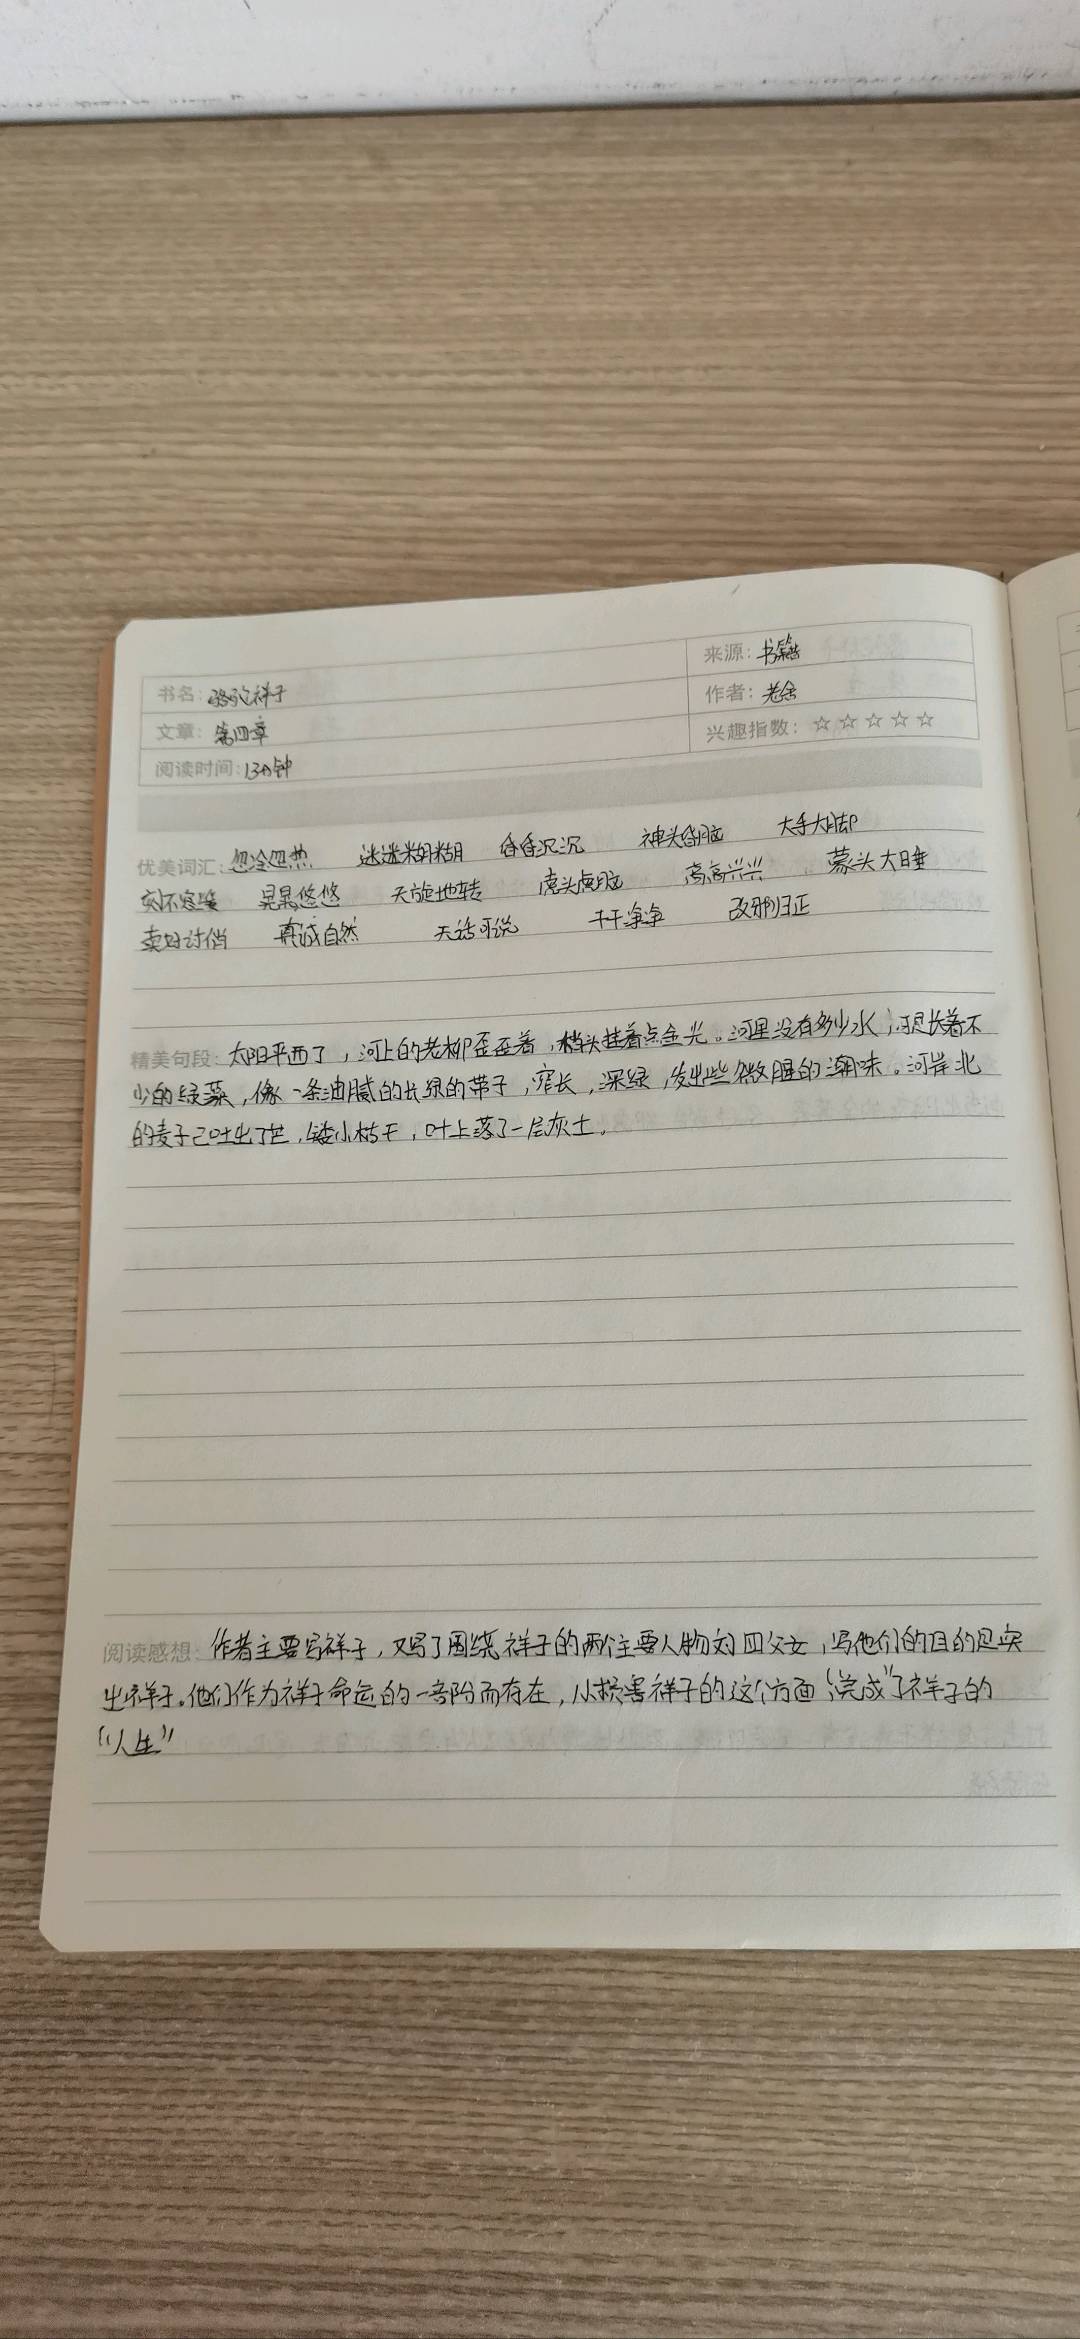 来源：书籍
书名：骆驼祥子
作者：老舍
文章：第四章
兴趣指数：☆☆☆☆☆
阅读时间：13分钟
优美词汇：忽冷忽热 迷迷糊糊 昏昏沉沉 神头昏脑 大手大脚
晃晃悠悠 天旋地转 虎头虎脑 高高兴兴 蒙头大睡
卖好讨俏 真诚自然 无话可说 干干净净 改邪归正
精美句段：太阳平西了，河上的老柳歪歪着，梢头挂着点金光。河里没有多少水，可是长着不
少的绿藻，像一条油腻的长绿的带子，窄长，深绿，发出些微腥的潮味。河岸北
的麦子已吐出了芒，矮小枯干，叶上落了一层灰土。
阅读感想：作者主要写祥子，又写了围绕祥子的两个主要人物刘四父女，写他们的目的是突
出祥子。他们作为祥子命运的一部份而存在，从损害祥子的这个方面“完成”了祥子的
“人生”